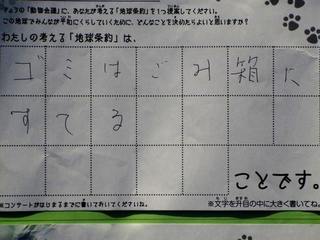 きょうの「動物会議」に、あなたが考える「地球条約」を1つ提案してください。
この地球でみんなが平和にくらしていくために、どんなことを決めたらよいと思いますか?
わたしの考える「地球条約」は、
ゴミはごみ箱に
すてる
ことです。
※コンサートがはじまるまでに書いておいてくださいね。
※文字を升目の中に大きく書いてね。